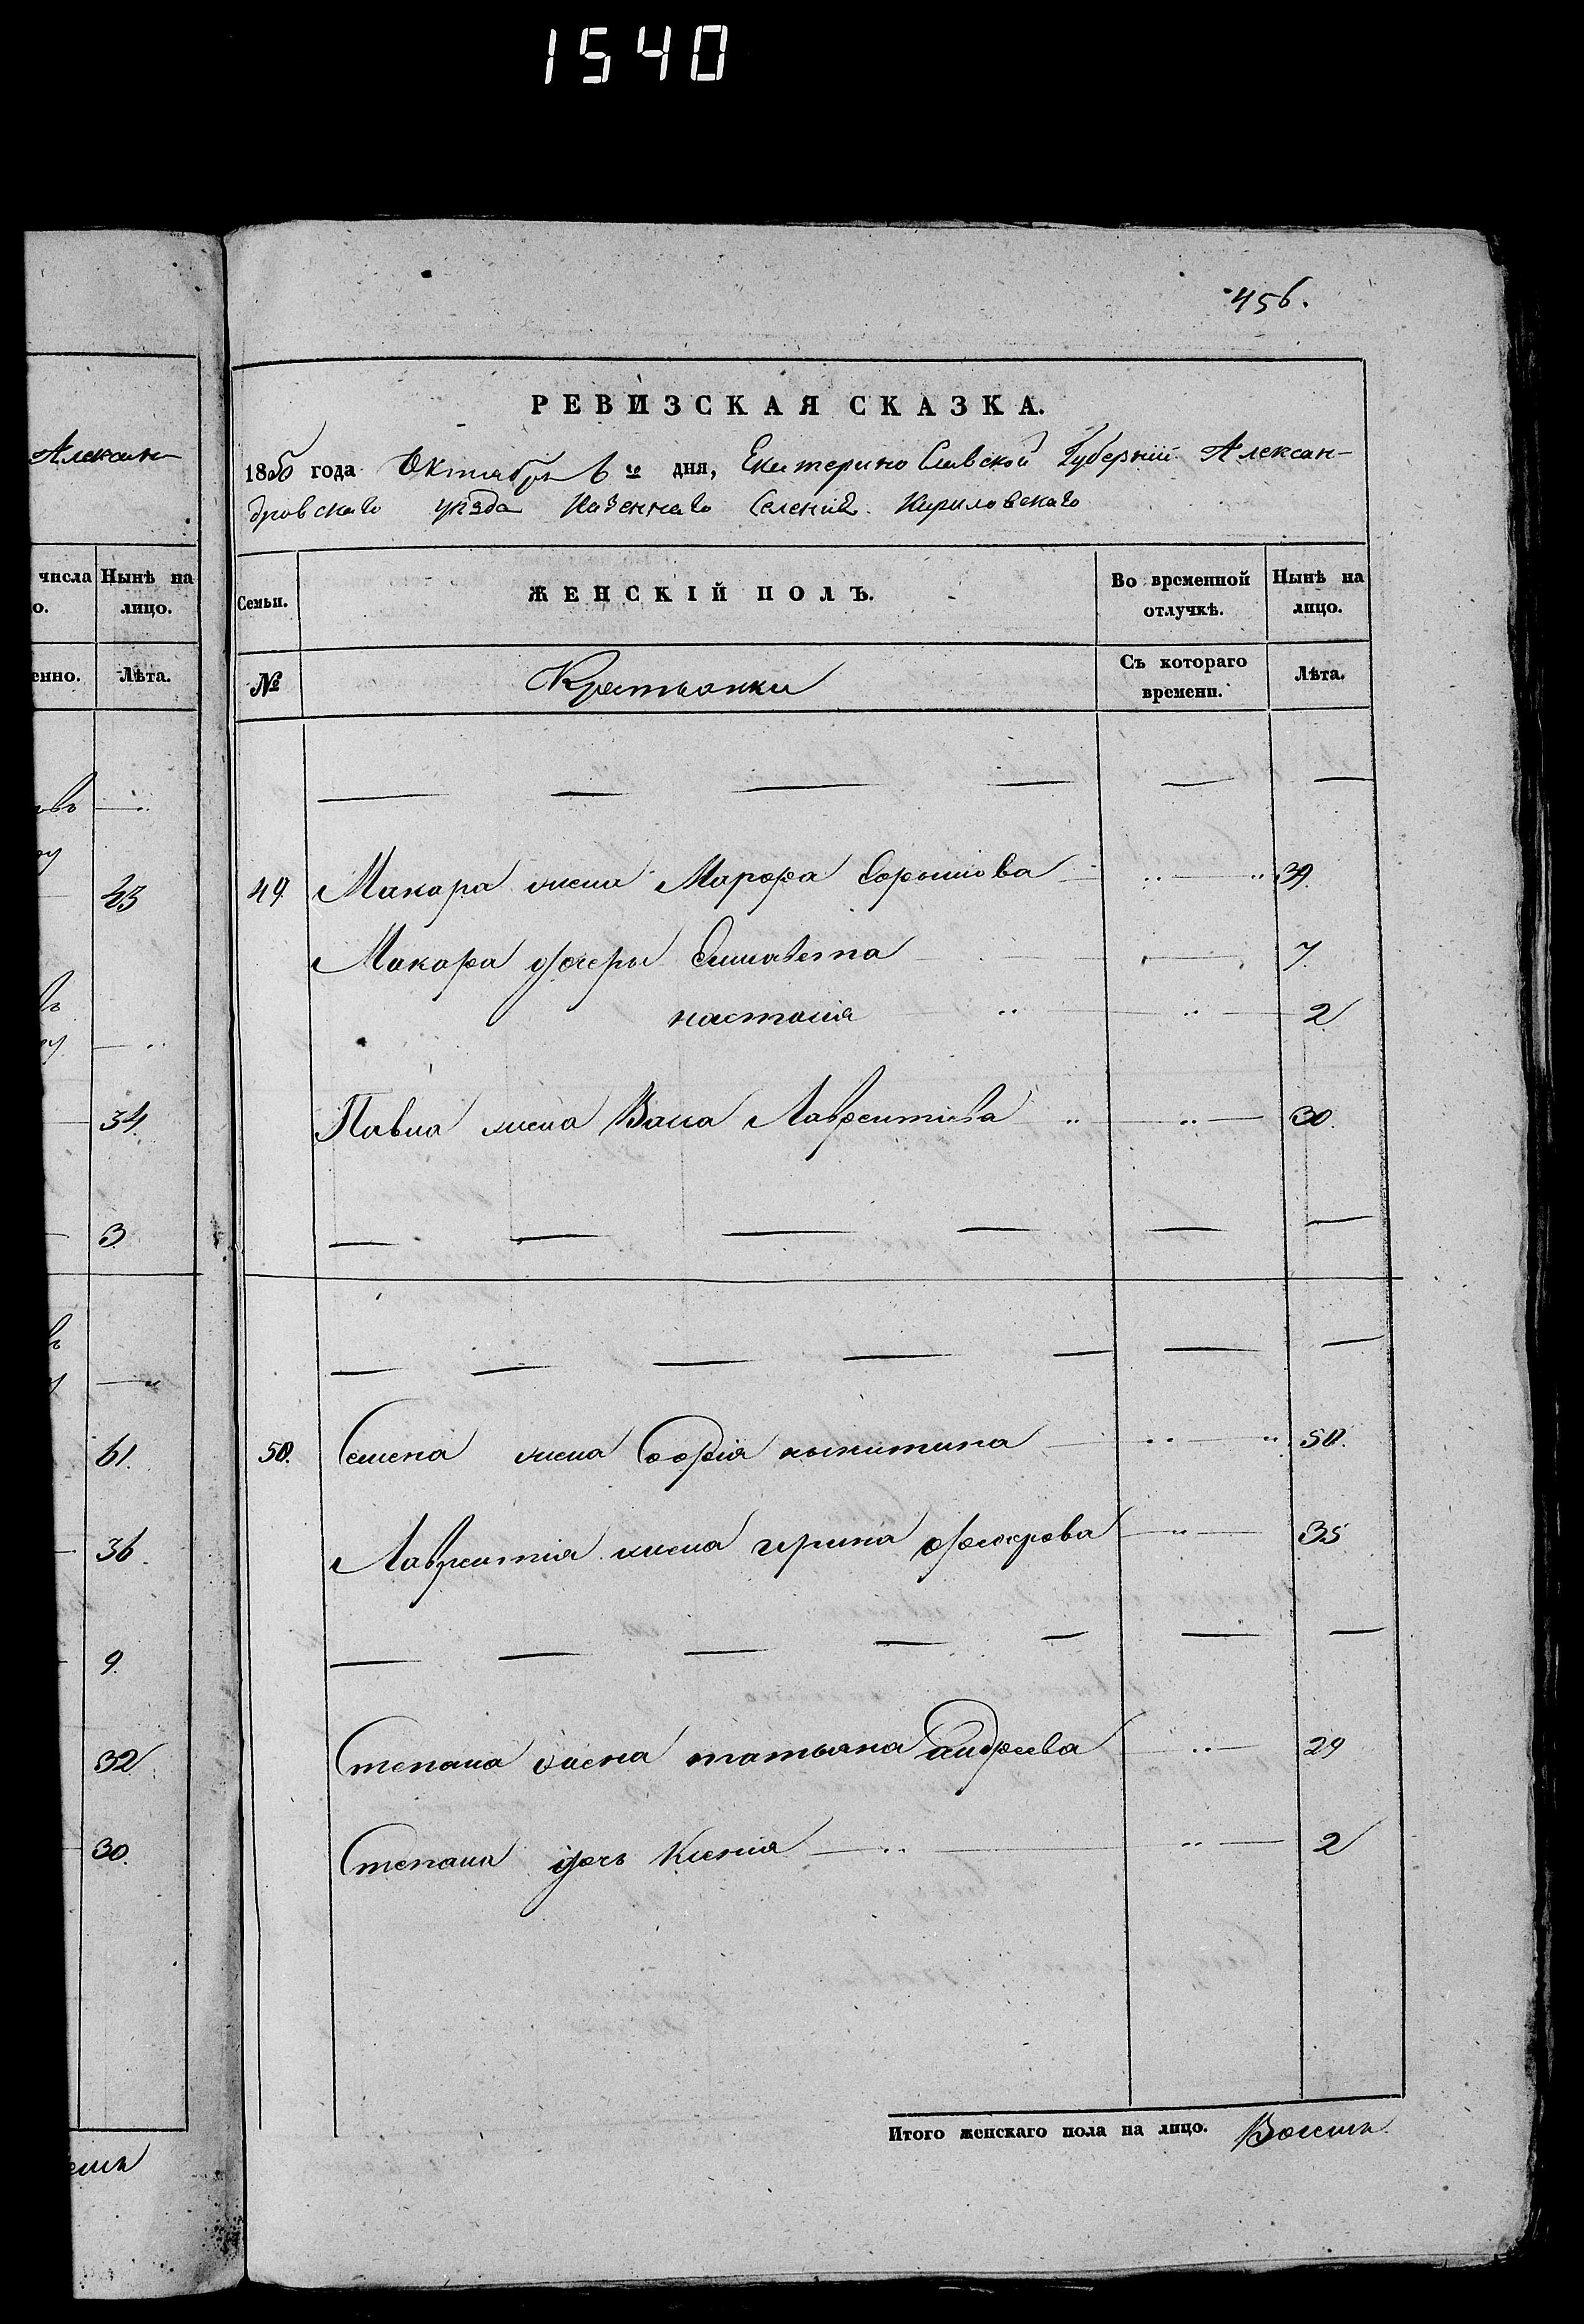 1540
456.
Алексан-
РЕВИЗСКАЯ СКАЗКА.
1850 года Октября 6го дня, Екатеринославской Губернии Алексан-
дровскаго уѣзда Казеннаго Селенія Кириловскаго
числа Нынѣ на
лицо.
Лѣта.
Семьи. ЖЕНСКІЙ ПОЛЪ. Во временной отлучкѣ. Нынѣ на лицо.
№ Крестьянки Съ котораго времени. Лѣта.
49. Макара жена Марфа 39.
43
Макара дочери Елисавета 7.
настасія 2
34.
Павла жена Васа Лаврентіева 30.
3
50. Семена жена Софія никитина 50.
61.
Лаврентія жена ирина федорова 35
36.
9.
Степана жена татьяна андреева 29
32
Степана дочь Ксенія 2
30.
Итого женскаго пола на лицо. Восемь